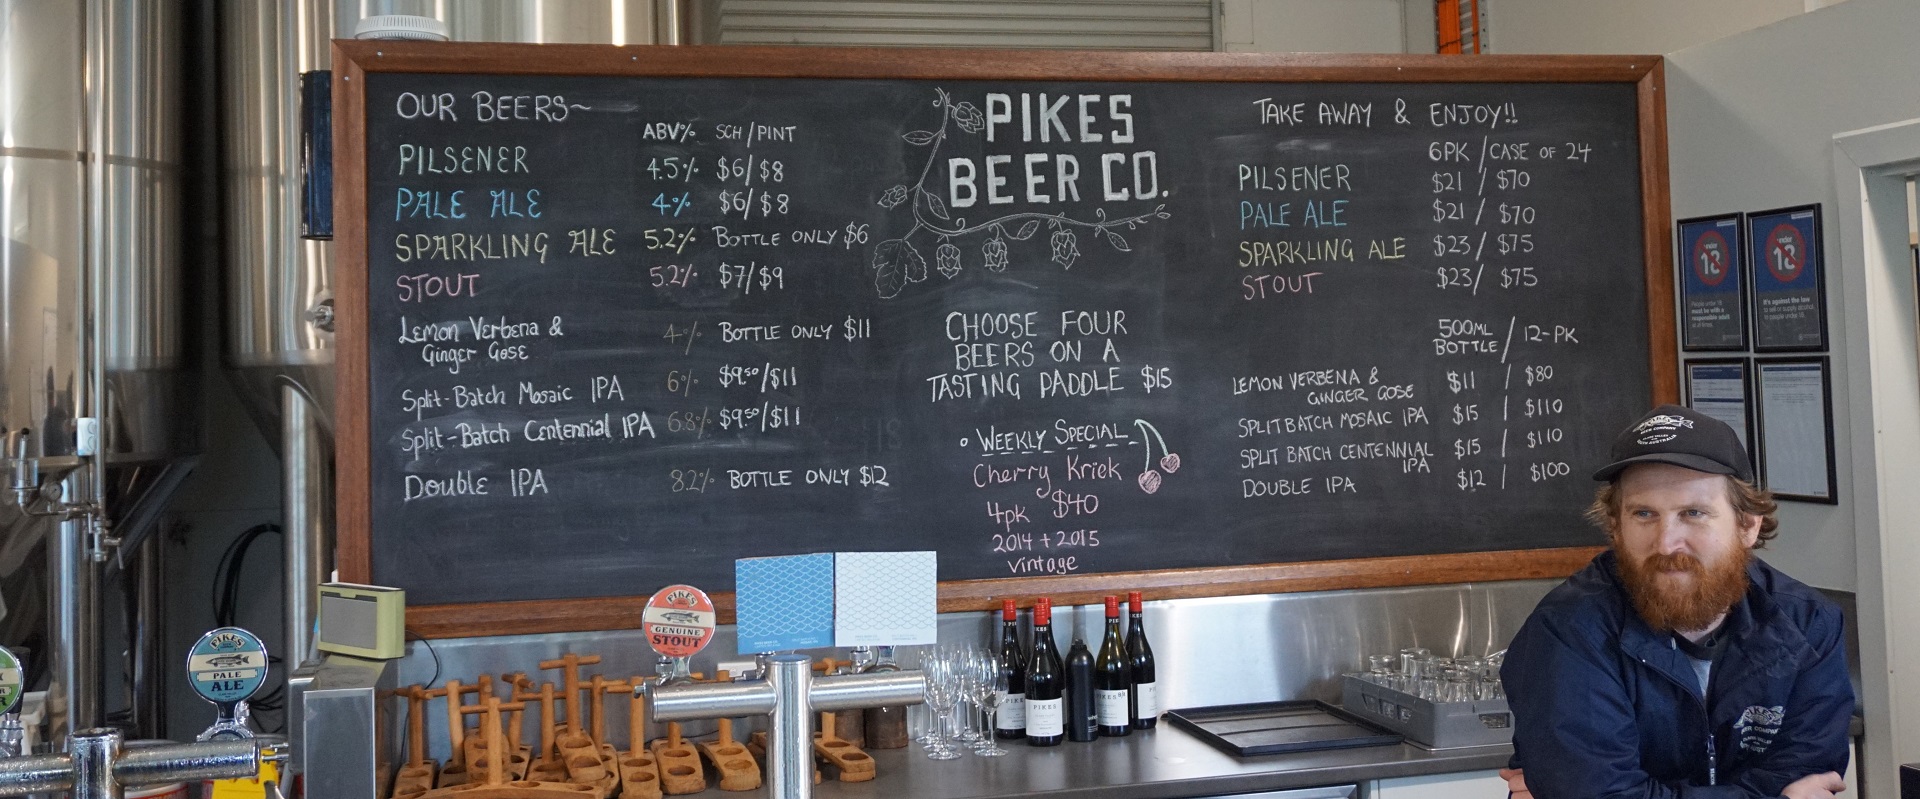 OUR BEERS~
ABV% SCH/PINT
PILSENER 4.5% $6/$8
PALE ALE 4% $6/$8
SPARKLING ALE 5.2% BOTTLE ONLY $6
STOUT 5.2% $7/$9
Lemon Verbena &
Ginger Gose 4% BOTTLE ONLY $11
Split-Batch Mosaic IPA 6% $9.50/$11
Split-Batch Centennial IPA 6.8% $9.50/$11
Double IPA 8.2% BOTTLE ONLY $12
PIKES
BEER CO.
CHOOSE FOUR
BEERS ON A
TASTING PADDLE $15
WEEKLY SPECIAL
Cherry Kriek
4pk $40
2014 + 2015
vintage
TAKE AWAY & ENJOY!!
6PK / CASE OF 24
PILSENER $21 / $70
PALE ALE $21 / $70
SPARKLING ALE $23 / $75
STOUT $23 / $75
500ML
BOTTLE / 12-PK
LEMON VERBENA &
GINGER GOSE $11 / $80
SPLIT BATCH MOSAIC IPA $15 / $110
SPLIT BATCH CENTENNIAL
IPA $15 / $110
DOUBLE IPA $12 / $100
under
18
under
18
It's against the law
PIKES
GENUINE
STOUT
PIKES
PALE
ALE
PIKES
PIKES
BEER COMPANY